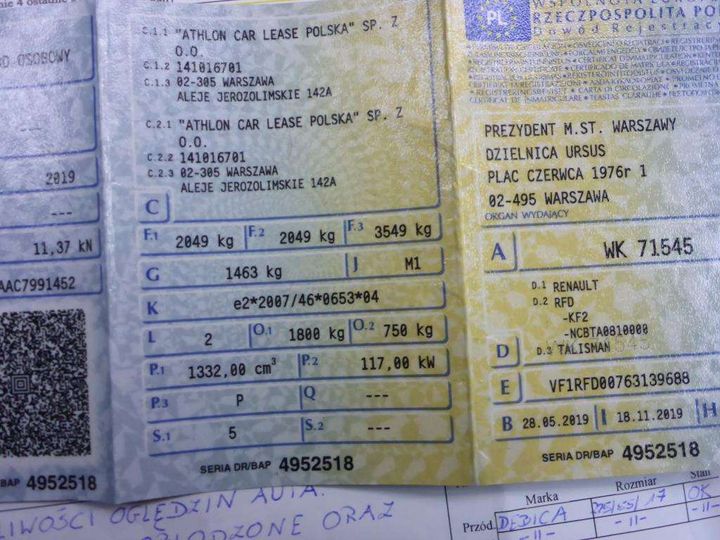 nie 4 ostatnie
D OSOBOWY
---
2019
---
11,37 kN
AAC7991452
BAP 4952518
C.1.1 "ATHLON CAR LEASE POLSKA" SP. Z
O.O.
C.1.2 141016701
C.1.3 02-305 WARSZAWA
ALEJE JEROZOLIMSKIE 142A
C.2.1 "ATHLON CAR LEASE POLSKA" SP. Z
O.O.
C.2.2 141016701
C.2.3 02-305 WARSZAWA
ALEJE JEROZOLIMSKIE 142A
C
F.1 2049 kg F.2 2049 kg F.3 3549 kg
G 1463 kg J M1
K e2*2007/46*0653*04
L 2 O.1 1800 kg O.2 750 kg
P.1 1332,00 cm³ P.2 117,00 kW
P.3 P Q ---
S.1 5 S.2 ---
SERIA DR/BAP 4952518
PL
RZECZPOSPOLITA PO
Dowód Rejestrac
PREZYDENT M.ST. WARSZAWY
DZIELNICA URSUS
PLAC CZERWCA 1976r 1
02-495 WARSZAWA
ORGAN WYDAJĄCY
A WK 71545
D.1 RENAULT
D.2 RFD
-KF2
-NCBTA0810000
D D.3 TALISMAN
E VF1RFD00763139688
B 28.05.2019 I 18.11.2019 H
SERIA DR/BAP 4952518
LIWOŚCI OGLĘDZIN AUTA.
ORAZ
Marka Rozmiar Stan
Przód. DĘBICA 17 OK
-II- -II- -II-